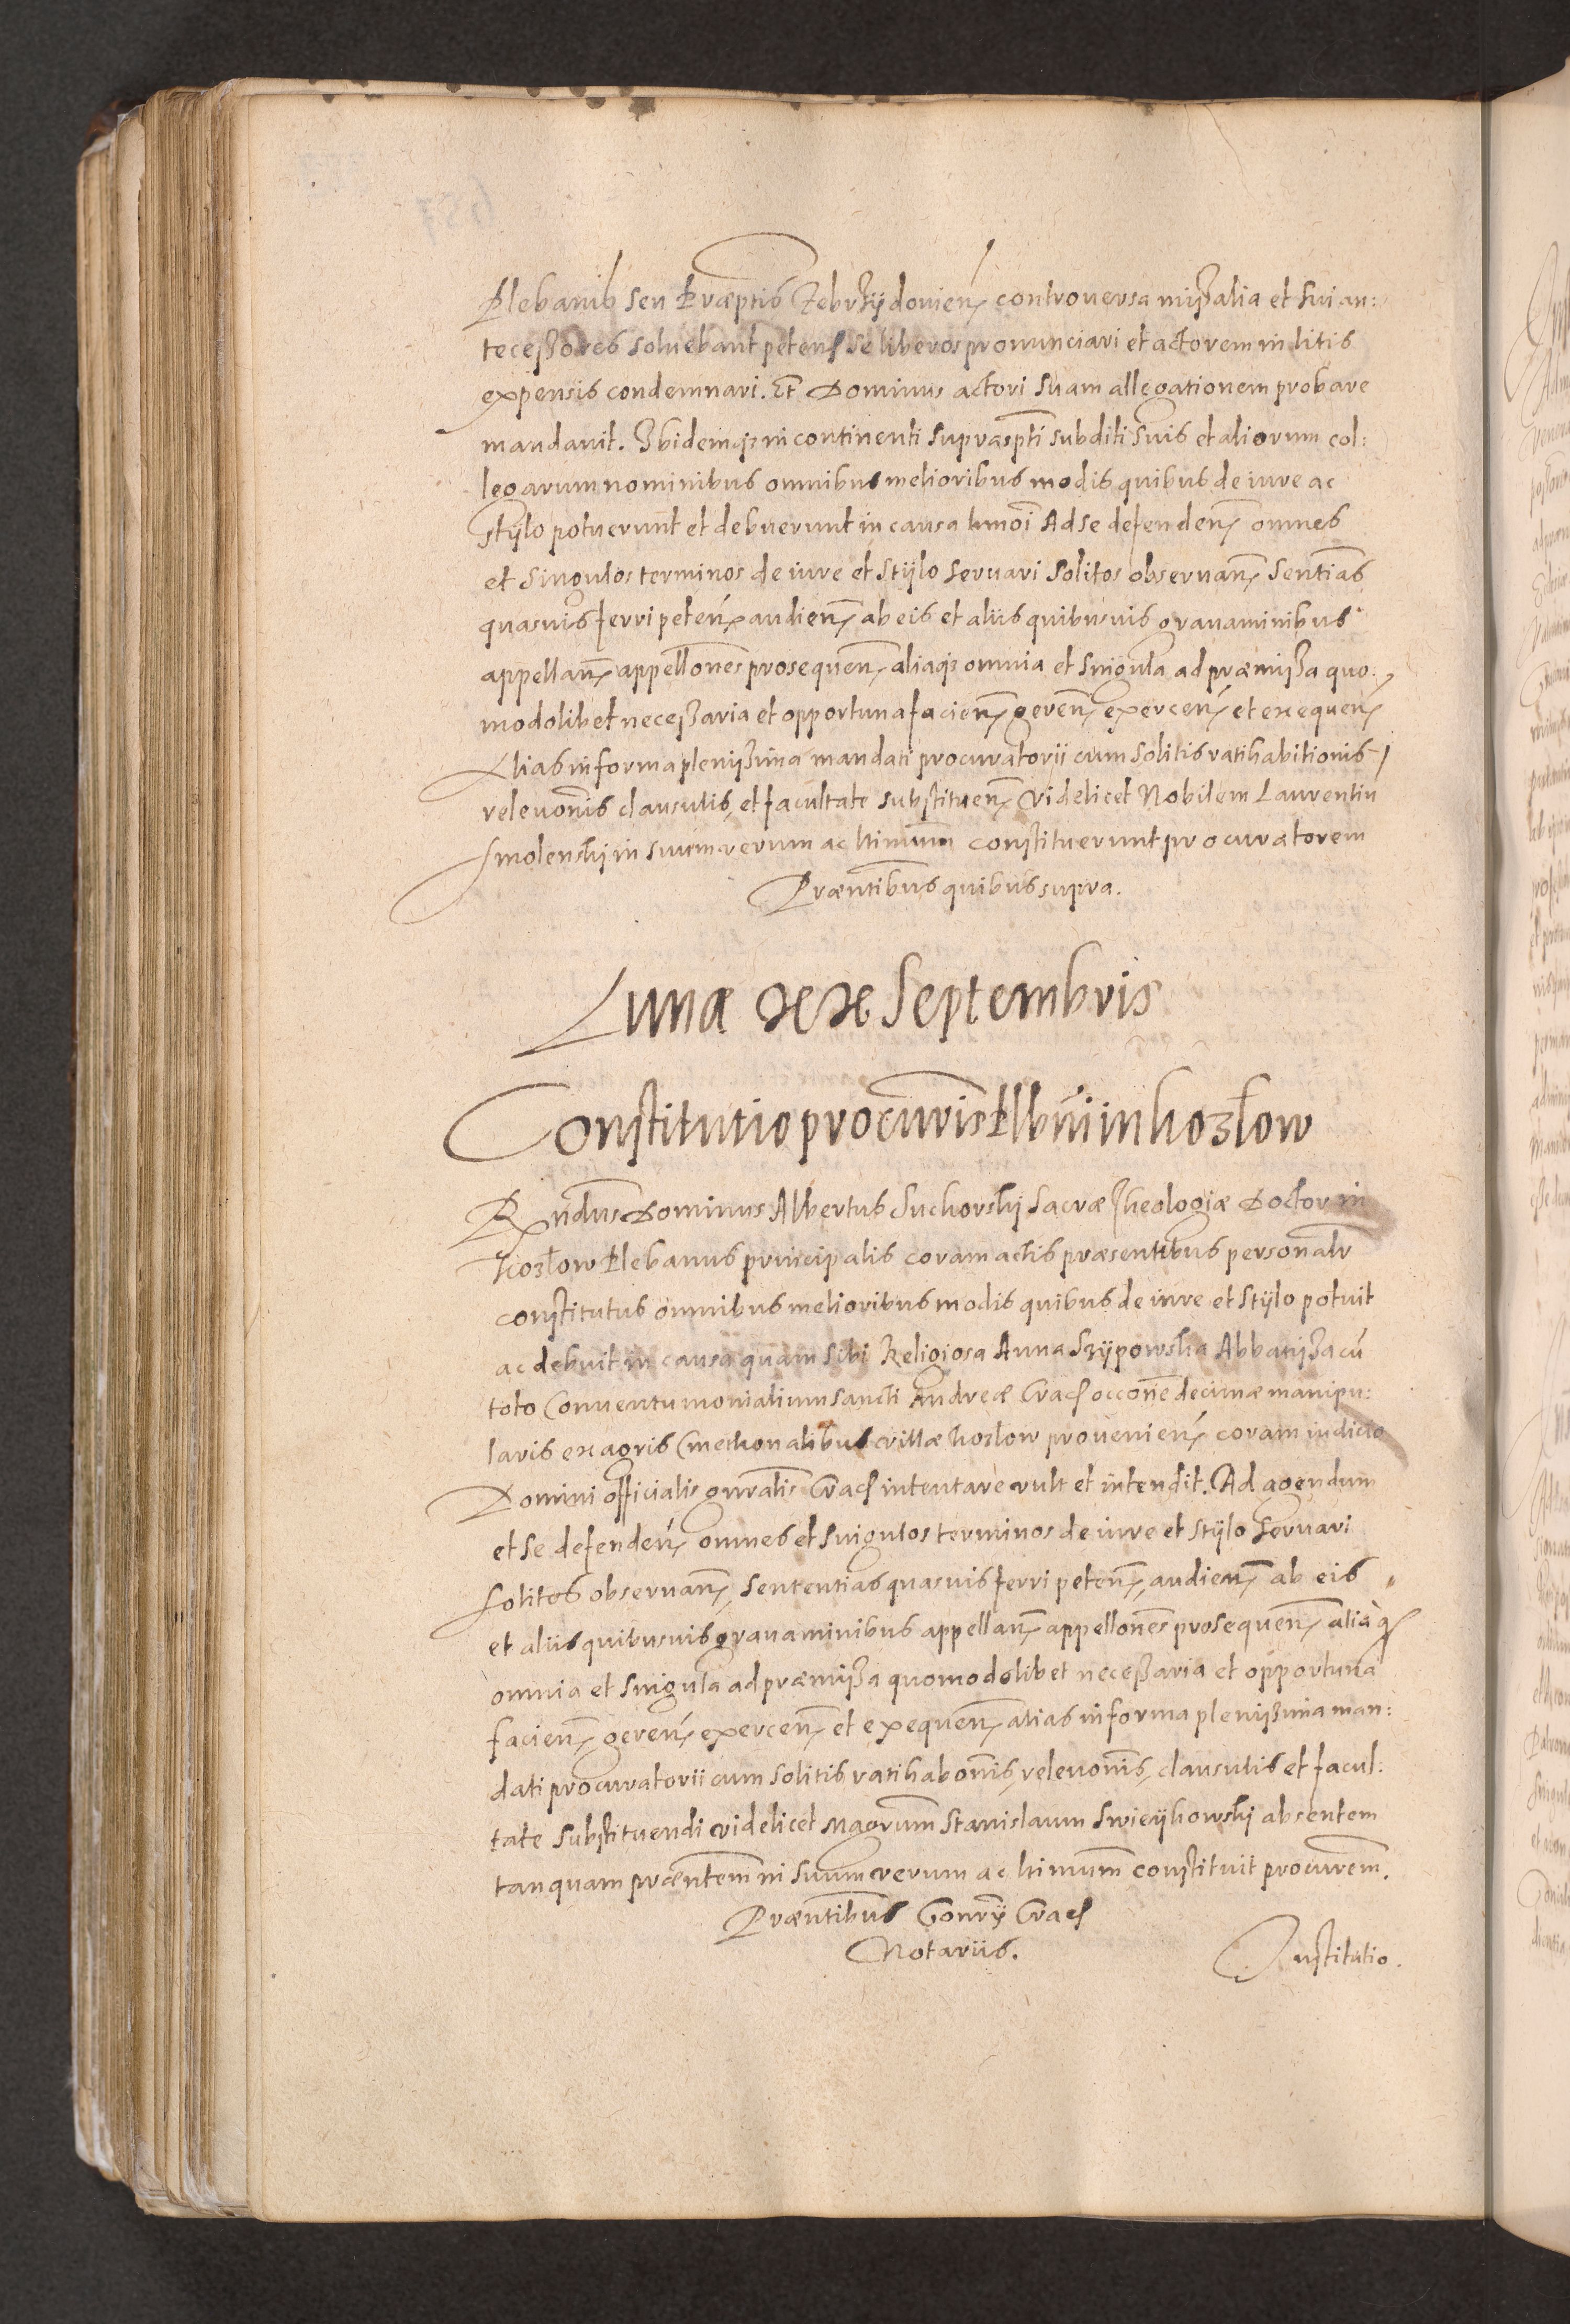 Plebanis seu Præptis Zebrzÿdouien controuersa mißalia et sui an:
teceßores soluebant petens se liberos pronunciari et actorem in litis
expensis condemnari. Et Dominus actori suam allegationem probare
mandauit. Ibidemqz in continenti supraspti subditi suis et aliorum col:
legarum nominibus omnibus melioribus modis quibus de iure ac
stÿlo potuerunt et debuerunt in causa hmoi Ad se defenden omnes
et singulos terminos de iure et stÿlo seruari solitos obseruan sentias
quasuis ferri peten audien ab eis et aliis quibusuis grauaminibus
appellan appellones prosequen aliaqz omnia et singula ad præmißa quo:
modolibet neceßaria et opportuna facien geren exercen et exequen
Alias in forma plenißima mandati procuratorii cum solitis ratihabitionis
releuonis clausulis, et facultate substituen Videlicet Nobilem Laurentiu
Smolenski in suum verum ac ltimum constituerunt procuratorem
Præntibus quibus supra.
Lunæ xx Septembris
Constitutio procuris Plbni in Kozłow
Rndus Dominus Albertus Suchorski Sacræ Theologiæ Doctor in
Kozłow Plebanus principalis coram actis præsentibus personalr
constitutus omnibus melioribus modis quibus de iure et stÿlo potuit
ac debuit in causa quam sibi Religiosa Anna Szÿpowska Abbatißa cu
toto Conuentu monialium sancti Andreæ Crac occone decimæ manipu:
laris ex agris Cmethonalibus villæ Kozłow prouenien coram iudicio
Domini officialis gnralis Crac intentare vult et intendit. Ad agendum
et se defenden omnes et singulos terminos de iure et stÿlo seruari
solitos obseruan, sententias quasuis ferri peten, audien ab eis
et aliis quibusuis grauaminibus appellan appellones prosequen aliaq
omnia et singula ad præmißa quomodolibet neceßaria et opportuna
facien geren exercen et exequen alias in forma plenißima man:
dati procuratorii cum solitis ratihabonis, releuonis, clausulis et facul:
tate substituendi videlicet Magrum Stanislaum Swieÿkowski absentem
tanquam præntem in suum verum ac ltimum constituit procurem.
Præntibus Consrÿ Crac
Notariis.
Constitutio.